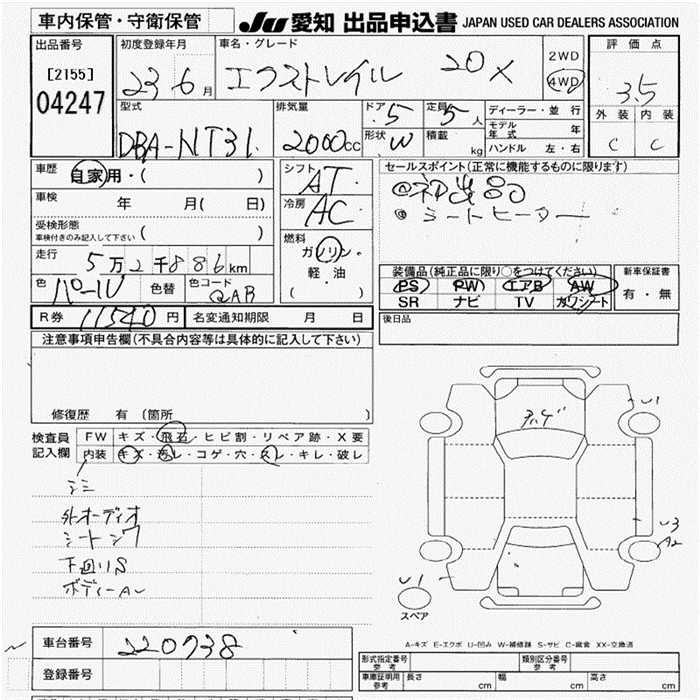 車内保管・守衛保管
JU 愛知 出品申込書 JAPAN USED CAR DEALERS ASSOCIATION
出品番号
[2155]
04247
初度登録年月
23 6月
車名・グレード
エクストレイル 20X
2WD
4WD
評価点
3.5
外装 内装
C C
型式
DBA-NT31
排気量
2000cc
ドア 5
形状 W
定員 5人
積載 kg
ディーラー・並行
モデル年式 年
ハンドル 左・右
車歴
自家用・( )
車検 年 月( 日)
受検形態
車検付きのみ記入して下さい ( )
走行
5万2千886km
色 パール 色替 色コード QAB
R券 11540円 名変通知期限 月 日
シフト AT
冷房 AC
燃料
ガソリン・
軽・油
( )
セールスポイント(正常に機能するものに限ります)
◎初出品
◎シートヒーター
装備品(純正品に限り○をつけてください)
PS PW エアB AW
SR ナビ TV カワシート
新車保証書
有・無
後日品
注意事項申告欄(不具合内容等は具体的に記入して下さい)
修復歴 有 (箇所 )
検査員
記入欄
FW キズ・飛石・ヒビ割・リペア跡・X要
内装 キズ・汚レ・コゲ・穴・スレ・キレ・破レ
シミ
外オーディオ
シートシワ
下回りS
U1
U3
A2
U1
スペア
A-キズ E-エクボ U-凹み W-補修跡 S-サビ C-腐食 XX-交換済
車台番号 220738
登録番号
形式指定番号
参考
類別区分番号
参考
車庫証明用
参考
長さ cm 幅 cm 高さ cm